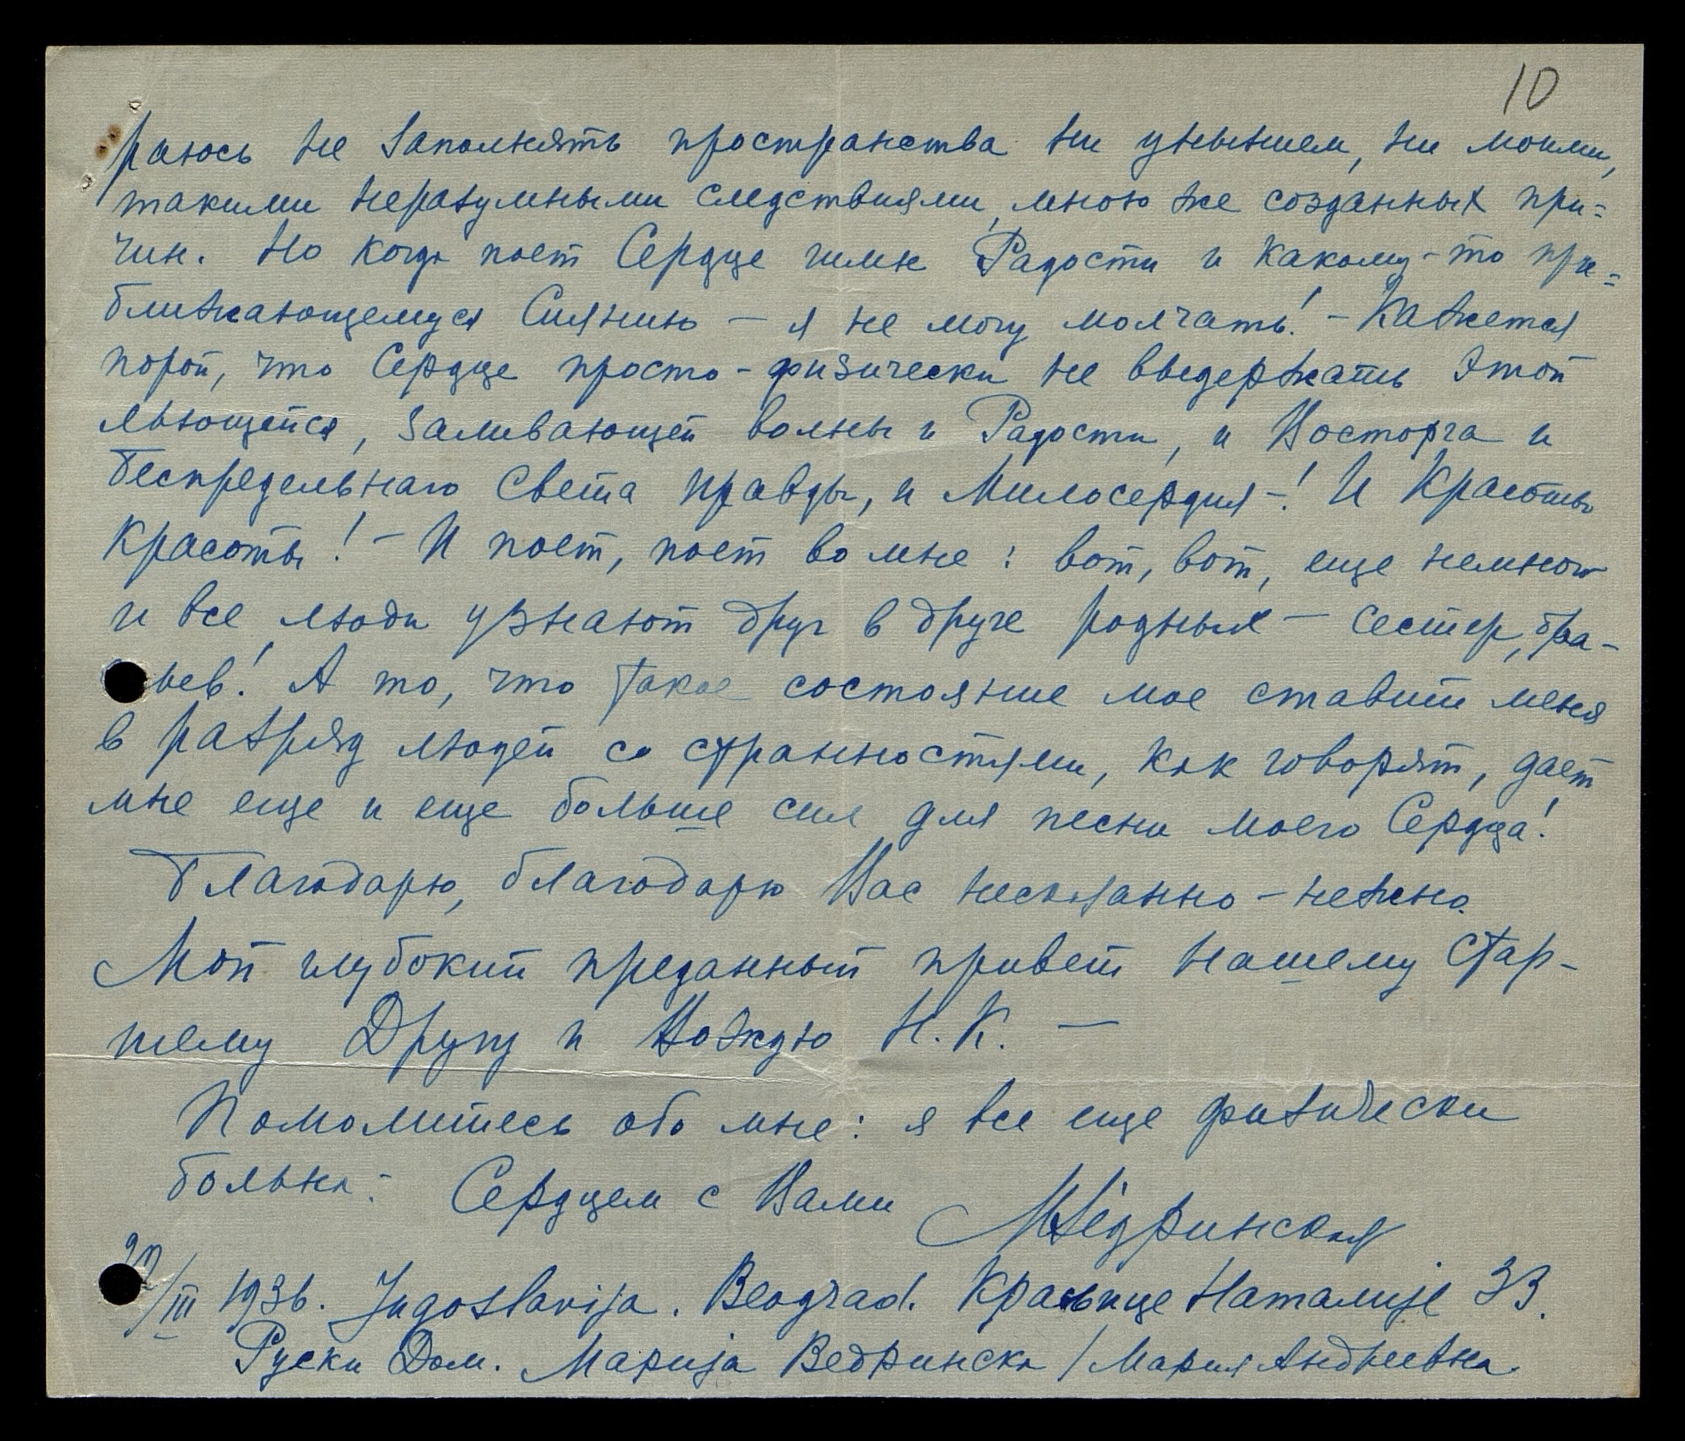 10
раюсь не заполнять пространства ни уныньем, ни моими,
такими неразумными следствиями, мною же созданных при=
чин. Но когда поет Сердце гимн Радости и какому-то при=
ближающемуся Сиянию — я не могу молчать! – Кажется
порой, что Сердце просто-физически не выдержать этой
льющейся, заливающей волны и Радости, и Восторга и
беспредельнаго Света правды, и Милосердия –! И Красоты
Красоты! – И поет, поет во мне: вот, вот, еще немного
и все люди узнают друг в друге родных – сестер, бра-
ьев! А то, что такое состояние мое ставит меня
в разряд людей со странностями, как говорят, дает
мне еще и еще больше сил для песни моего Сердца!
Благодарю, благодарю Вас несказанно – нежно.
Мой глубокий преданный привет нашему Стар-
шему Другу и Вождю Н.К. —
Помолитесь обо мне: я все еще физически
больна. – Сердцем с Вами МВедринская
/III 1936. Jugoslavija. Beograd. Краљице Наталије 33.
Руски Дом. Марија Ведринска / Мария Андреевна.